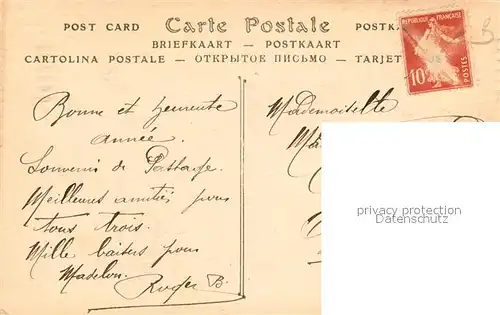 POST CARD Carte Postale POSTKA
BRIEFKAART — POSTKAART
CARTOLINA POSTALE — ОТКРЫТОЕ ПИСЬМО — TARJET
REPUBLIQUE FRANÇAISE
10c
POSTES
B
Bonne et heureuse
année.
Souvenir de Passage.
Meilleures amitiés pour
tous trois.
Mille baisers pour
Madelon.
Roger B.
Mademoiselle
privacy protection
Datenschutz